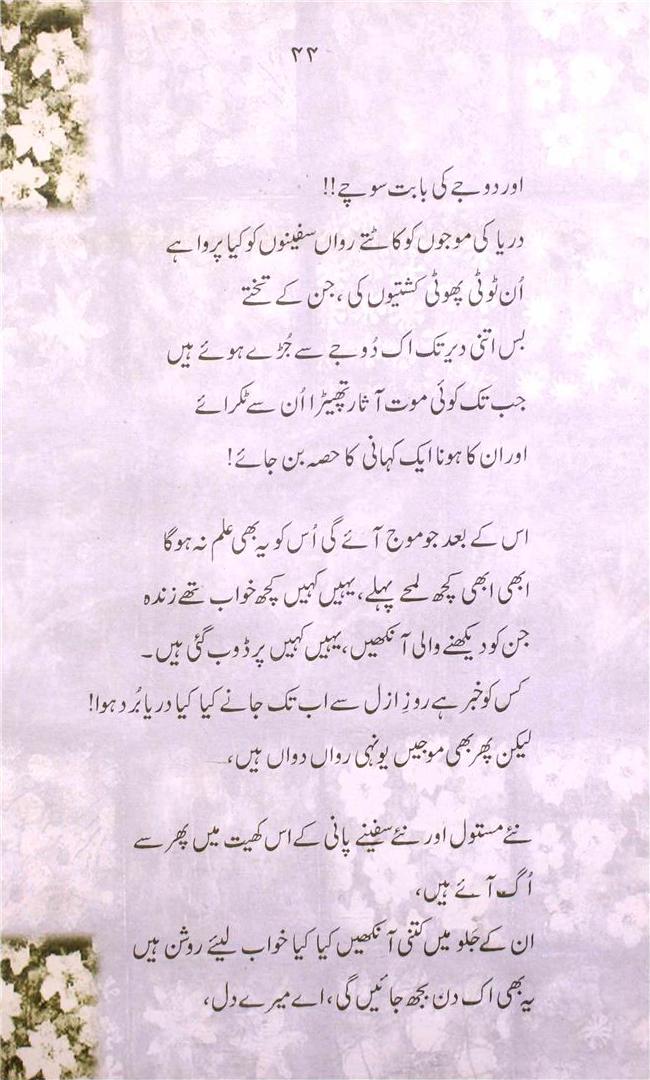 ۴۴
اور دوجے کی بابت سوچے!!
دریا کی موجوں کو کاٹتے رواں سفینوں کو کیا پروا ہے
اُن ٹوٹی پھوٹی کشتیوں کی، جن کے تختے
بس اتنی دیر تک اک دُوجے سے جُڑے ہوئے ہیں
جب تک کوئی موت آثار تھپیڑا اُن سے ٹکرائے
اور ان کا ہونا ایک کہانی کا حصہ بن جائے!
اس کے بعد جو موج آئے گی اُس کو یہ بھی علم نہ ہوگا
ابھی ابھی کچھ لمحے پہلے، یہیں کہیں کچھ خواب تھے زندہ
جن کو دیکھنے والی آنکھیں، یہیں کہیں پر ڈوب گئی ہیں۔
کس کو خبر ہے روزِ ازل سے اب تک جانے کیا کیا دریا بُرد ہوا!
لیکن پھر بھی موجیں یونہی رواں دواں ہیں،
نئے مستول اور نئے سفینے پانی کے اس کھیت میں پھر سے
اُگ آئے ہیں،
ان کے جَلو میں کتنی آنکھیں کیا کیا خواب لیئے روشن ہیں
یہ بھی اک دن بجھ جائیں گی، اے میرے دل،